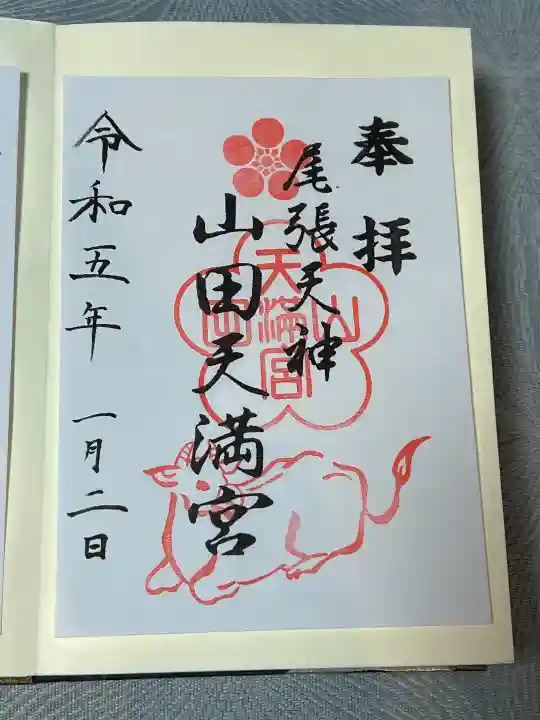 奉拝
尾張天神
山田天満宮
令和五年 一月二日
山田
天満宮